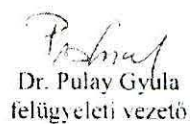 Dr. Pulay Gyula
felügyeleti vezető